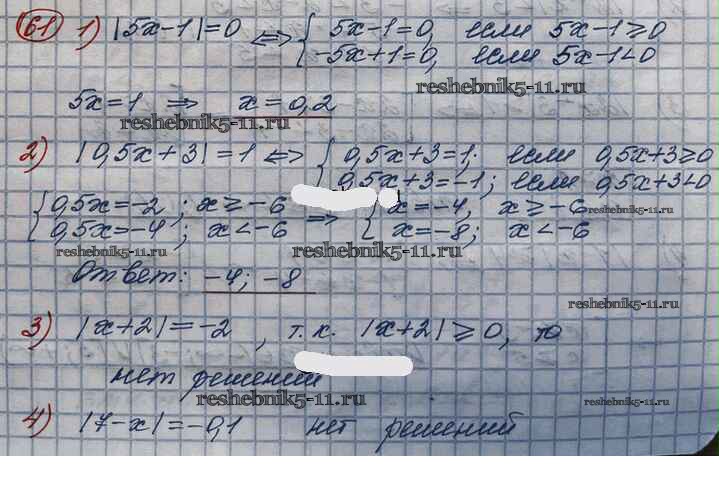 61 1) |5x-1|=0 <=> { 5x-1=0, если 5x-1≥0
-5x+1=0, если 5x-1<0
reshebnik5-11.ru
5x=1 => x=0,2
reshebnik5-11.ru
2) |0,5x+3|=1 <=> { 0,5x+3=1; если 0,5x+3≥0
0,5x+3=-1; если 0,5x+3<0
{ 0,5x=-2; x≥-6 => { x=-4, x≥-6
reshebnik5-11.ru
0,5x=-4; x<-6 x=-8; x<-6
reshebnik5-11.ru reshebnik5-11.ru
Ответ: -4; -8
reshebnik5-11.ru
3) |x+2|=-2, т.к. |x+2|≥0, то
нет решений
reshebnik5-11.ru reshebnik5-11.ru
4) |7-x|=-0,1 нет решений